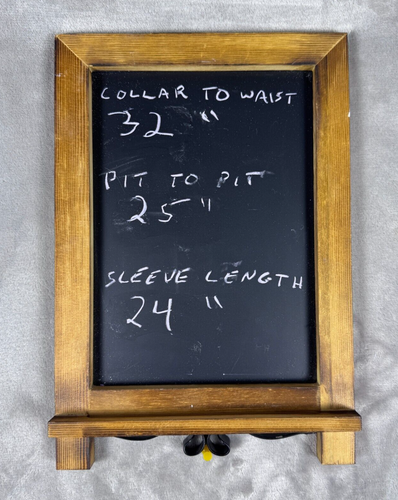 COLLAR TO WAIST
32 "
PIT TO PIT
25 "
SLEEVE LENGTH
24 "